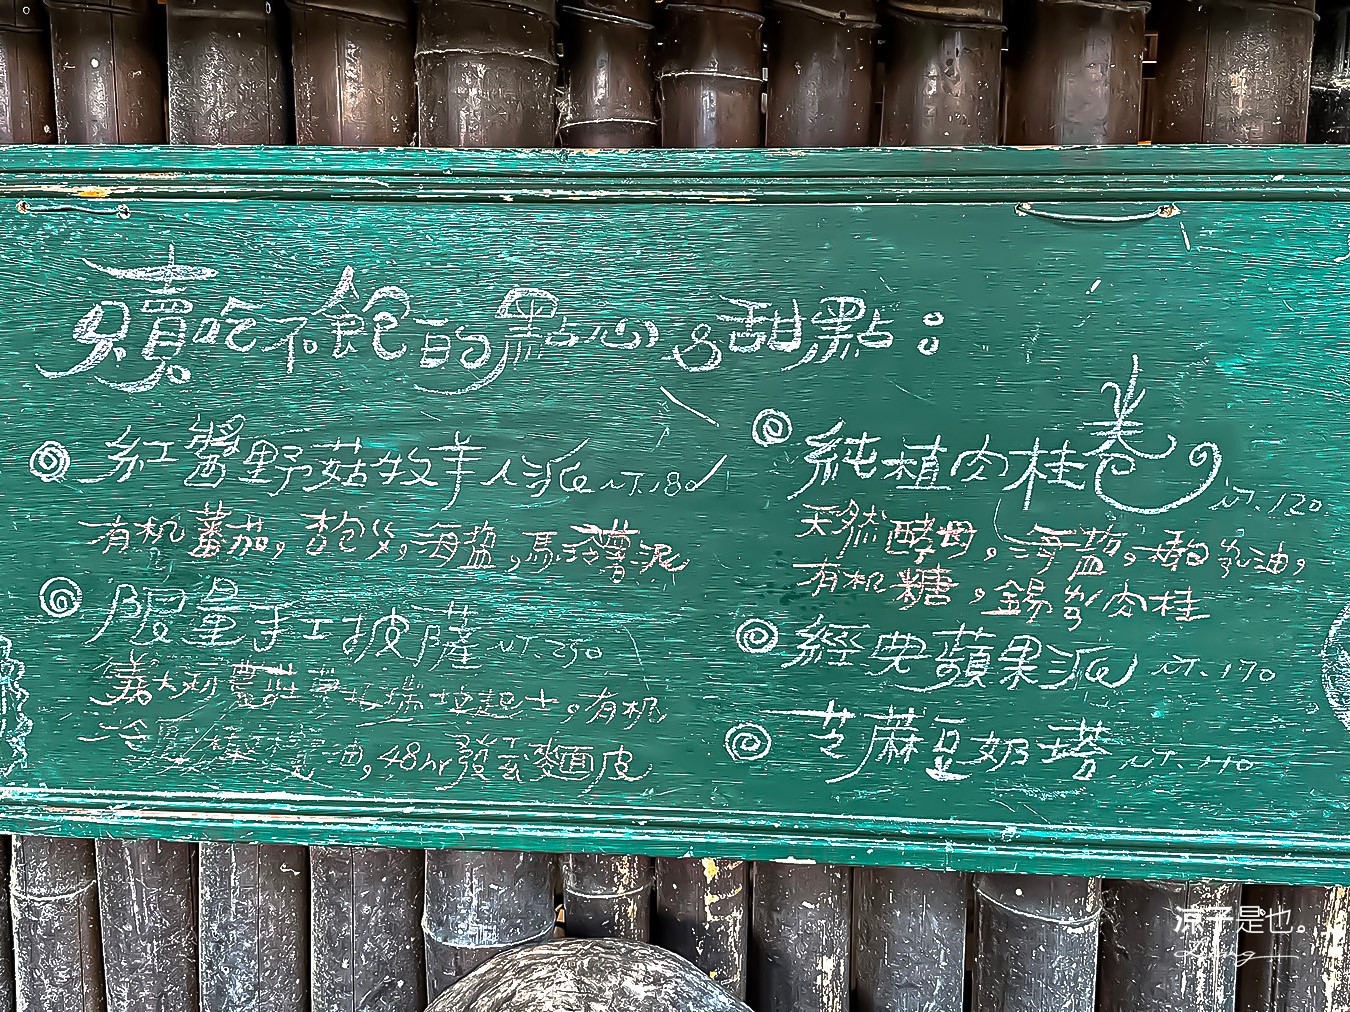 賣吃不飽的點心&甜點:
紅醬野菇牧羊人派NT.180
有机蕃茄,杏包菇,海盐,馬鈴薯泥
限量手工披薩NT.250
義大利蘑菇莫札瑞拉起士,有机
冷壓橄欖油,48hr發酵麵皮
純植肉桂卷NT.120
天然酵母,海盐,橄欖油,
有机糖,錫蘭肉桂
經典蘋果派NT.170
芝麻豆奶塔NT.140
涼子是也。